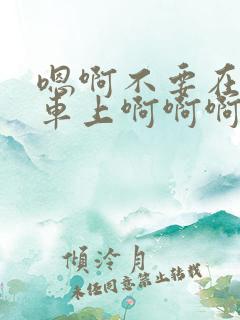 嗯啊不要在
車上啊啊啊
傾泠月
未经同意禁止转载